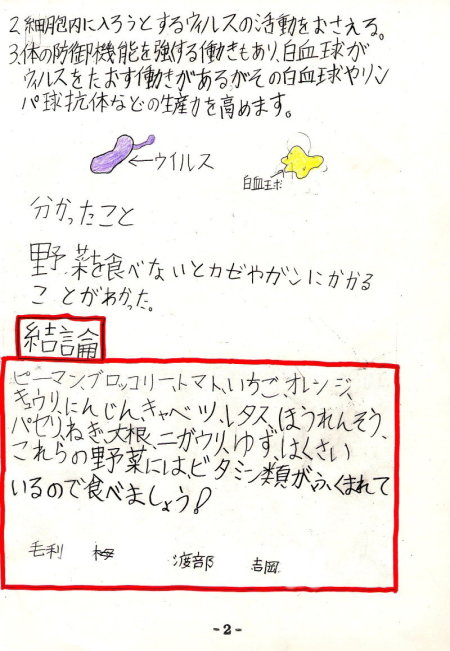 2.細胞内に入ろうとするウィルスの活動をおさえる。
3.体の防御機能を強する働きもあり、白血球が
ウィルスをたおす働きがあるがその白血球やリン
パ球抗体などの生産力を高めます。
←ウイルス
白血球
分かったこと
野菜を食べないとカゼやガンにかかる
ことがわかった。
結論
ピーマン、ブロッコリー、トマト、いちご、オレンジ、
キュウリ、にんじん、キャベツ、レタス、ほうれんそう、
パセリ、ねぎ、大根、ニガウリ、ゆず、はくさい
これらの野菜には、ビタミン類がふくまれて
いるので食べましょう!
毛利 梅 渡部 吉岡
-2-